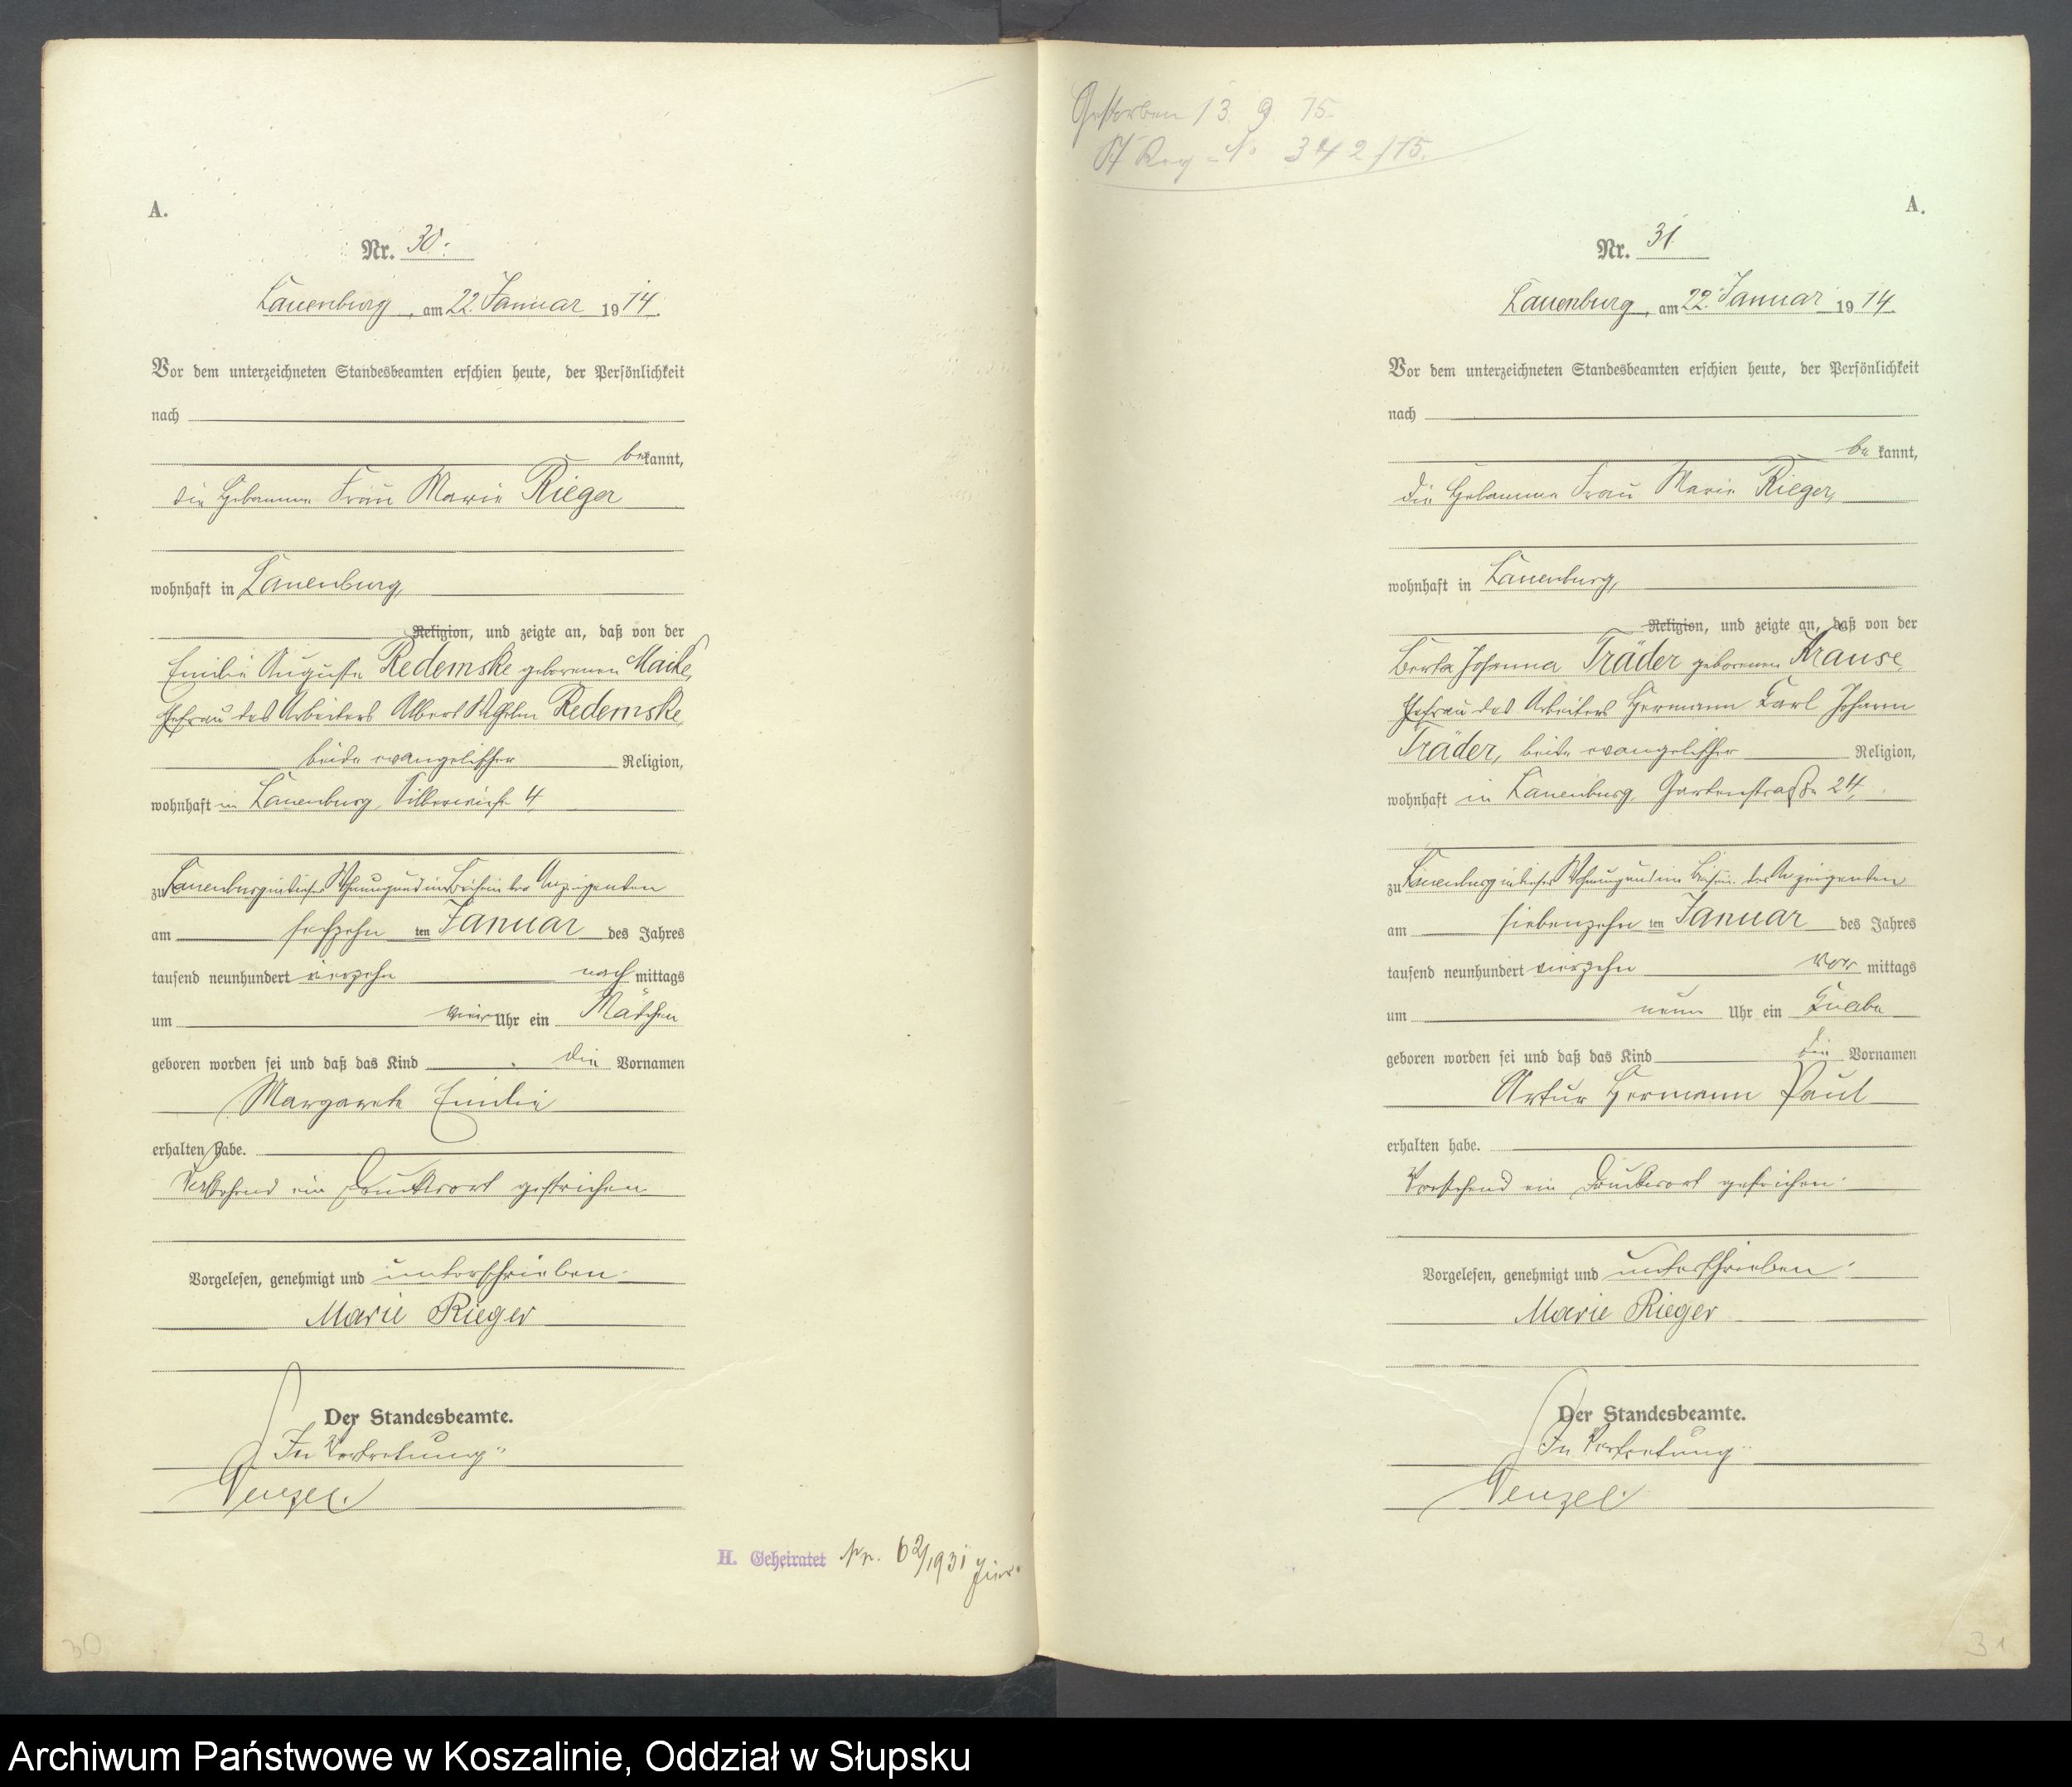 A.
Nr. 30.
Lauenburg, am 22. Januar 1914.
Vor dem unterzeichneten Standesbeamten erschien heute, der Persönlichkeit
nach
bekannt,
die Hebamme Frau Marie Rieger
wohnhaft in Lauenburg,
Religion, und zeigte an, daß von der
Emilie Auguste Redemske geborenen Maike,
Ehefrau des Arbeiters Albert Wilhelm Redemske,
beide evangelischer Religion,
wohnhaft in Lauenburg, 4,
zu Lauenburg in dieser Wohnung und im Beisein der Anzeigenden
am sechzehnten Januar des Jahres
tausend neunhundert vierzehn nachmittags
um vier Uhr ein Mädchen
geboren worden sei und daß das Kind die Vornamen
Margarete Emilie
erhalten habe.
Vorstehend ein Druckwort gestrichen
Vorgelesen, genehmigt und unterschrieben.
Marie Rieger
Der Standesbeamte.
In Vertretung
Wenzel.
H. Geheiratet Nr. 62/1931 hier.
30
Gestorben 13. 9. 15.
St Reg-No 342/15.
A.
Nr. 31
Lauenburg, am 22. Januar 1914.
Vor dem unterzeichneten Standesbeamten erschien heute, der Persönlichkeit
nach
bekannt,
die Hebamme Frau Marie Rieger,
wohnhaft in Lauenburg,
Religion, und zeigte an, daß von der
Berta Johanna Träder geborenen Krause,
Ehefrau des Arbeiters Hermann Karl Johann
Träder, beide evangelischer Religion,
wohnhaft in Lauenburg, Gartenstraße 24,
zu Lauenburg in dieser Wohnung und im Beisein der Anzeigenden
am siebenzehnten Januar des Jahres
tausend neunhundert vierzehn vormittags
um neun Uhr ein Knabe
geboren worden sei und daß das Kind die Vornamen
Artur Hermann Paul
erhalten habe.
Vorstehend ein Druckwort gestrichen.
Vorgelesen, genehmigt und unterschrieben.
Marie Rieger
Der Standesbeamte.
In Vertretung
Wenzel.
31
Archiwum Państwowe w Koszalinie, Oddział w Słupsku